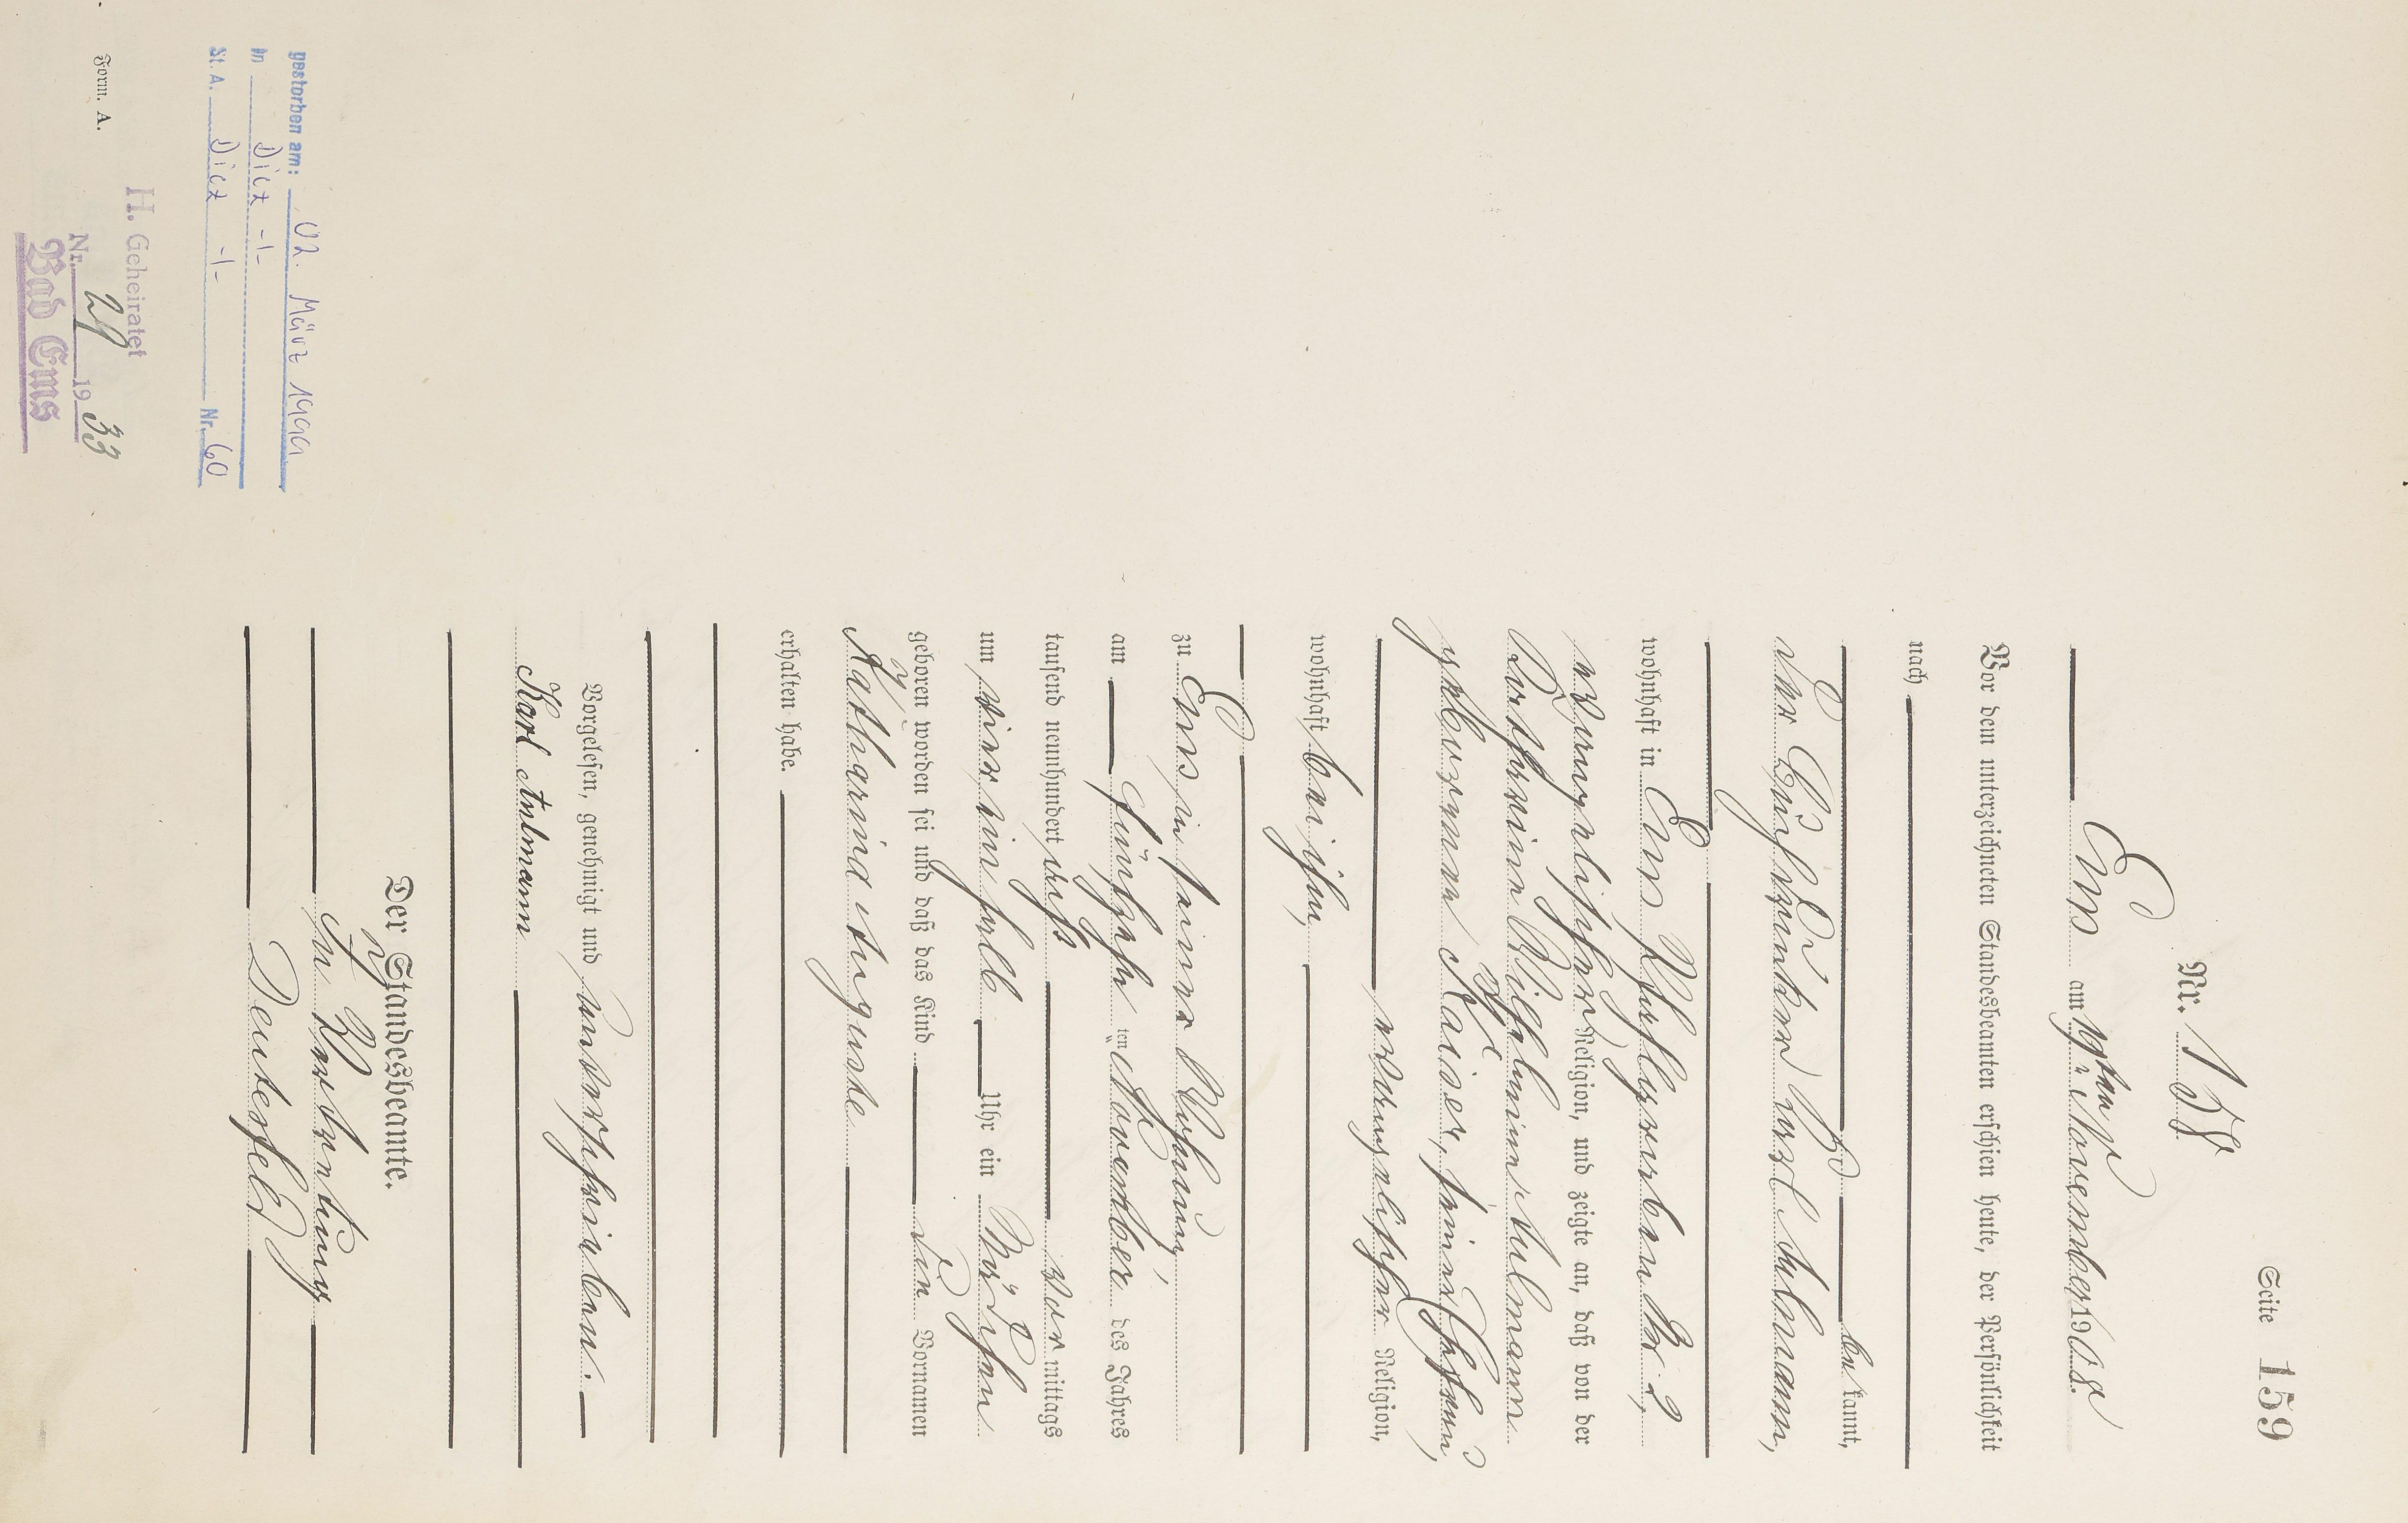 Seite 159
Nr. 158
Ems am 19ten November 1908.
Vor dem unterzeichneten Standesbeamten erschien heute, der Persönlichkeit
nach
bekannt,
der Buchdrucker Karl Aulmann,
wohnhaft in Ems, Nr. 2,
evangelischer Religion, und zeigte an, daß von der
Wilhelmine Aulmann
geborenen Kaiser, seiner Ehefrau,
evangelischer Religion,
wohnhaft bei ihm,
zu Ems in seiner Wohnung,
am fünfzehn ten November des Jahres
tausend neunhundert acht vormittags
um vier ein halb Uhr ein Mädchen
geboren worden sei und daß das Kind den Vornamen
Katharina Auguste
erhalten habe.
Vorgelesen, genehmigt und unterschrieben.
Karl Aulmann
Der Standesbeamte.
In Vertretung
gestorben am: 02. März 1990
in Diez -1-
St. A. Diez -1- Nr. 60
Form. A.
H. Geheiratet
Nr. 29 1933
Bad Ems